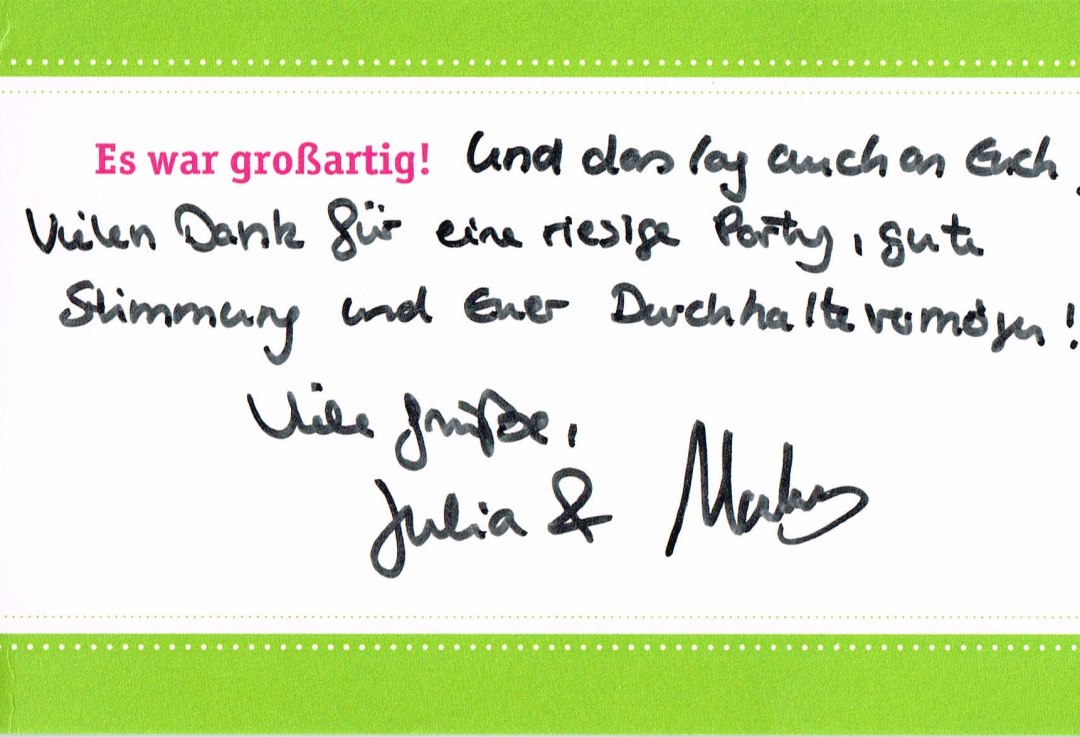 Es war großartig! Und das lag auch an Euch.
Vielen Dank für eine riesige Party, gute
Stimmung und Euer Durchhaltevermögen!
Viele Grüße,
Julia & Markus